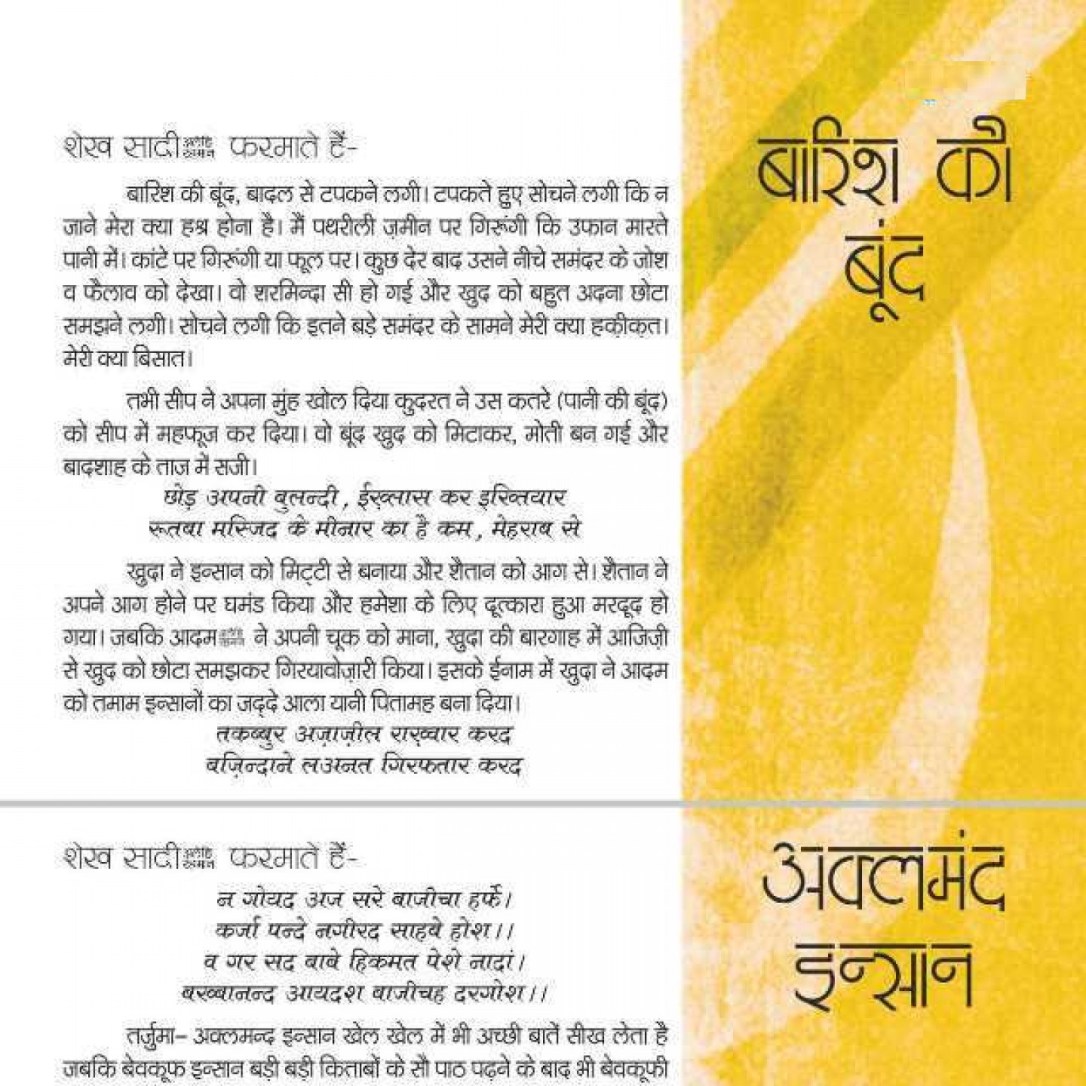 बारिश की
बूंद
शेख सादी फरमाते हैं-
बारिश की बूंद, बादल से टपकने लगी। टपकते हुए सोचने लगी कि न
जाने मेरा क्या हश्र होना है। मैं पथरीली ज़मीन पर गिरूंगी कि उफान मारते
पानी में। कांटे पर गिरूंगी या फूल पर। कुछ देर बाद उसने नीचे समंदर के जोश
व फैलाव को देखा। वो शरमिन्दा सी हो गई और खुद को बहुत अदना छोटा
समझने लगी। सोचने लगी कि इतने बड़े समंदर के सामने मेरी क्या हकी़क़त।
मेरी क्या बिसात।
तभी सीप ने अपना मुंह खोल दिया कुदरत ने उस कतरे (पानी की बूंद)
को सीप में महफूज़ कर दिया। वो बूंद खुद को मिटाकर, मोती बन गई और
बादशाह के ताज में सजी।
छोड़ अपनी बुलन्दी, ईख़्लास कर इख्तियार
रूतबा मस्जिद के मीनार का है कम, मेहराब से
खुदा ने इन्सान को मिट्टी से बनाया और शैतान को आग से। शैतान ने
अपने आग होने पर घमंड किया और हमेशा के लिए दूत्कारा हुआ मरदूद हो
गया। जबकि आदम ने अपनी चूक को माना, खुदा की बारगाह में आजिजी़
से खुद को छोटा समझकर गिरयावोज़ारी किया। इसके ईनाम में खुदा ने आदम
को तमाम इन्सानों का जद्दे आला यानी पितामह बना दिया।
तकब्बुर अज़ाज़ील राख़्वार करद
बज़िन्दाने लअनत गिरफतार करद
अक्लमंद
इन्सान
शेख सादी फरमाते हैं-
न गोयद अज सरे बाजीचा हर्फे।
कर्जा पन्दे नगीरद साहबे होश।।
व गर सद बाबे हिकमत पेशे नादां।
बख्वानन्द आयदश बाजीचह दरगोश।।
तर्जुमा– अक्लमन्द इन्सान खेल खेल में भी अच्छी बातें सीख लेता है
जबकि बेवकूफ इन्सान बड़ी बड़ी किताबों के सौ पाठ पढ़ने के बाद भी बेवकूफी